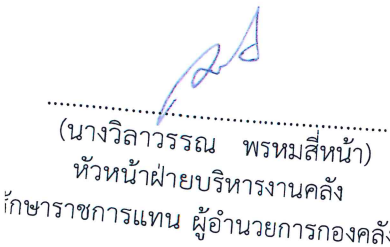 (นางวิลาวรรณ พรหมสี่หน้า)
หัวหน้าฝ่ายบริหารงานคลัง
รักษาราชการแทน ผู้อำนวยการกองคลัง